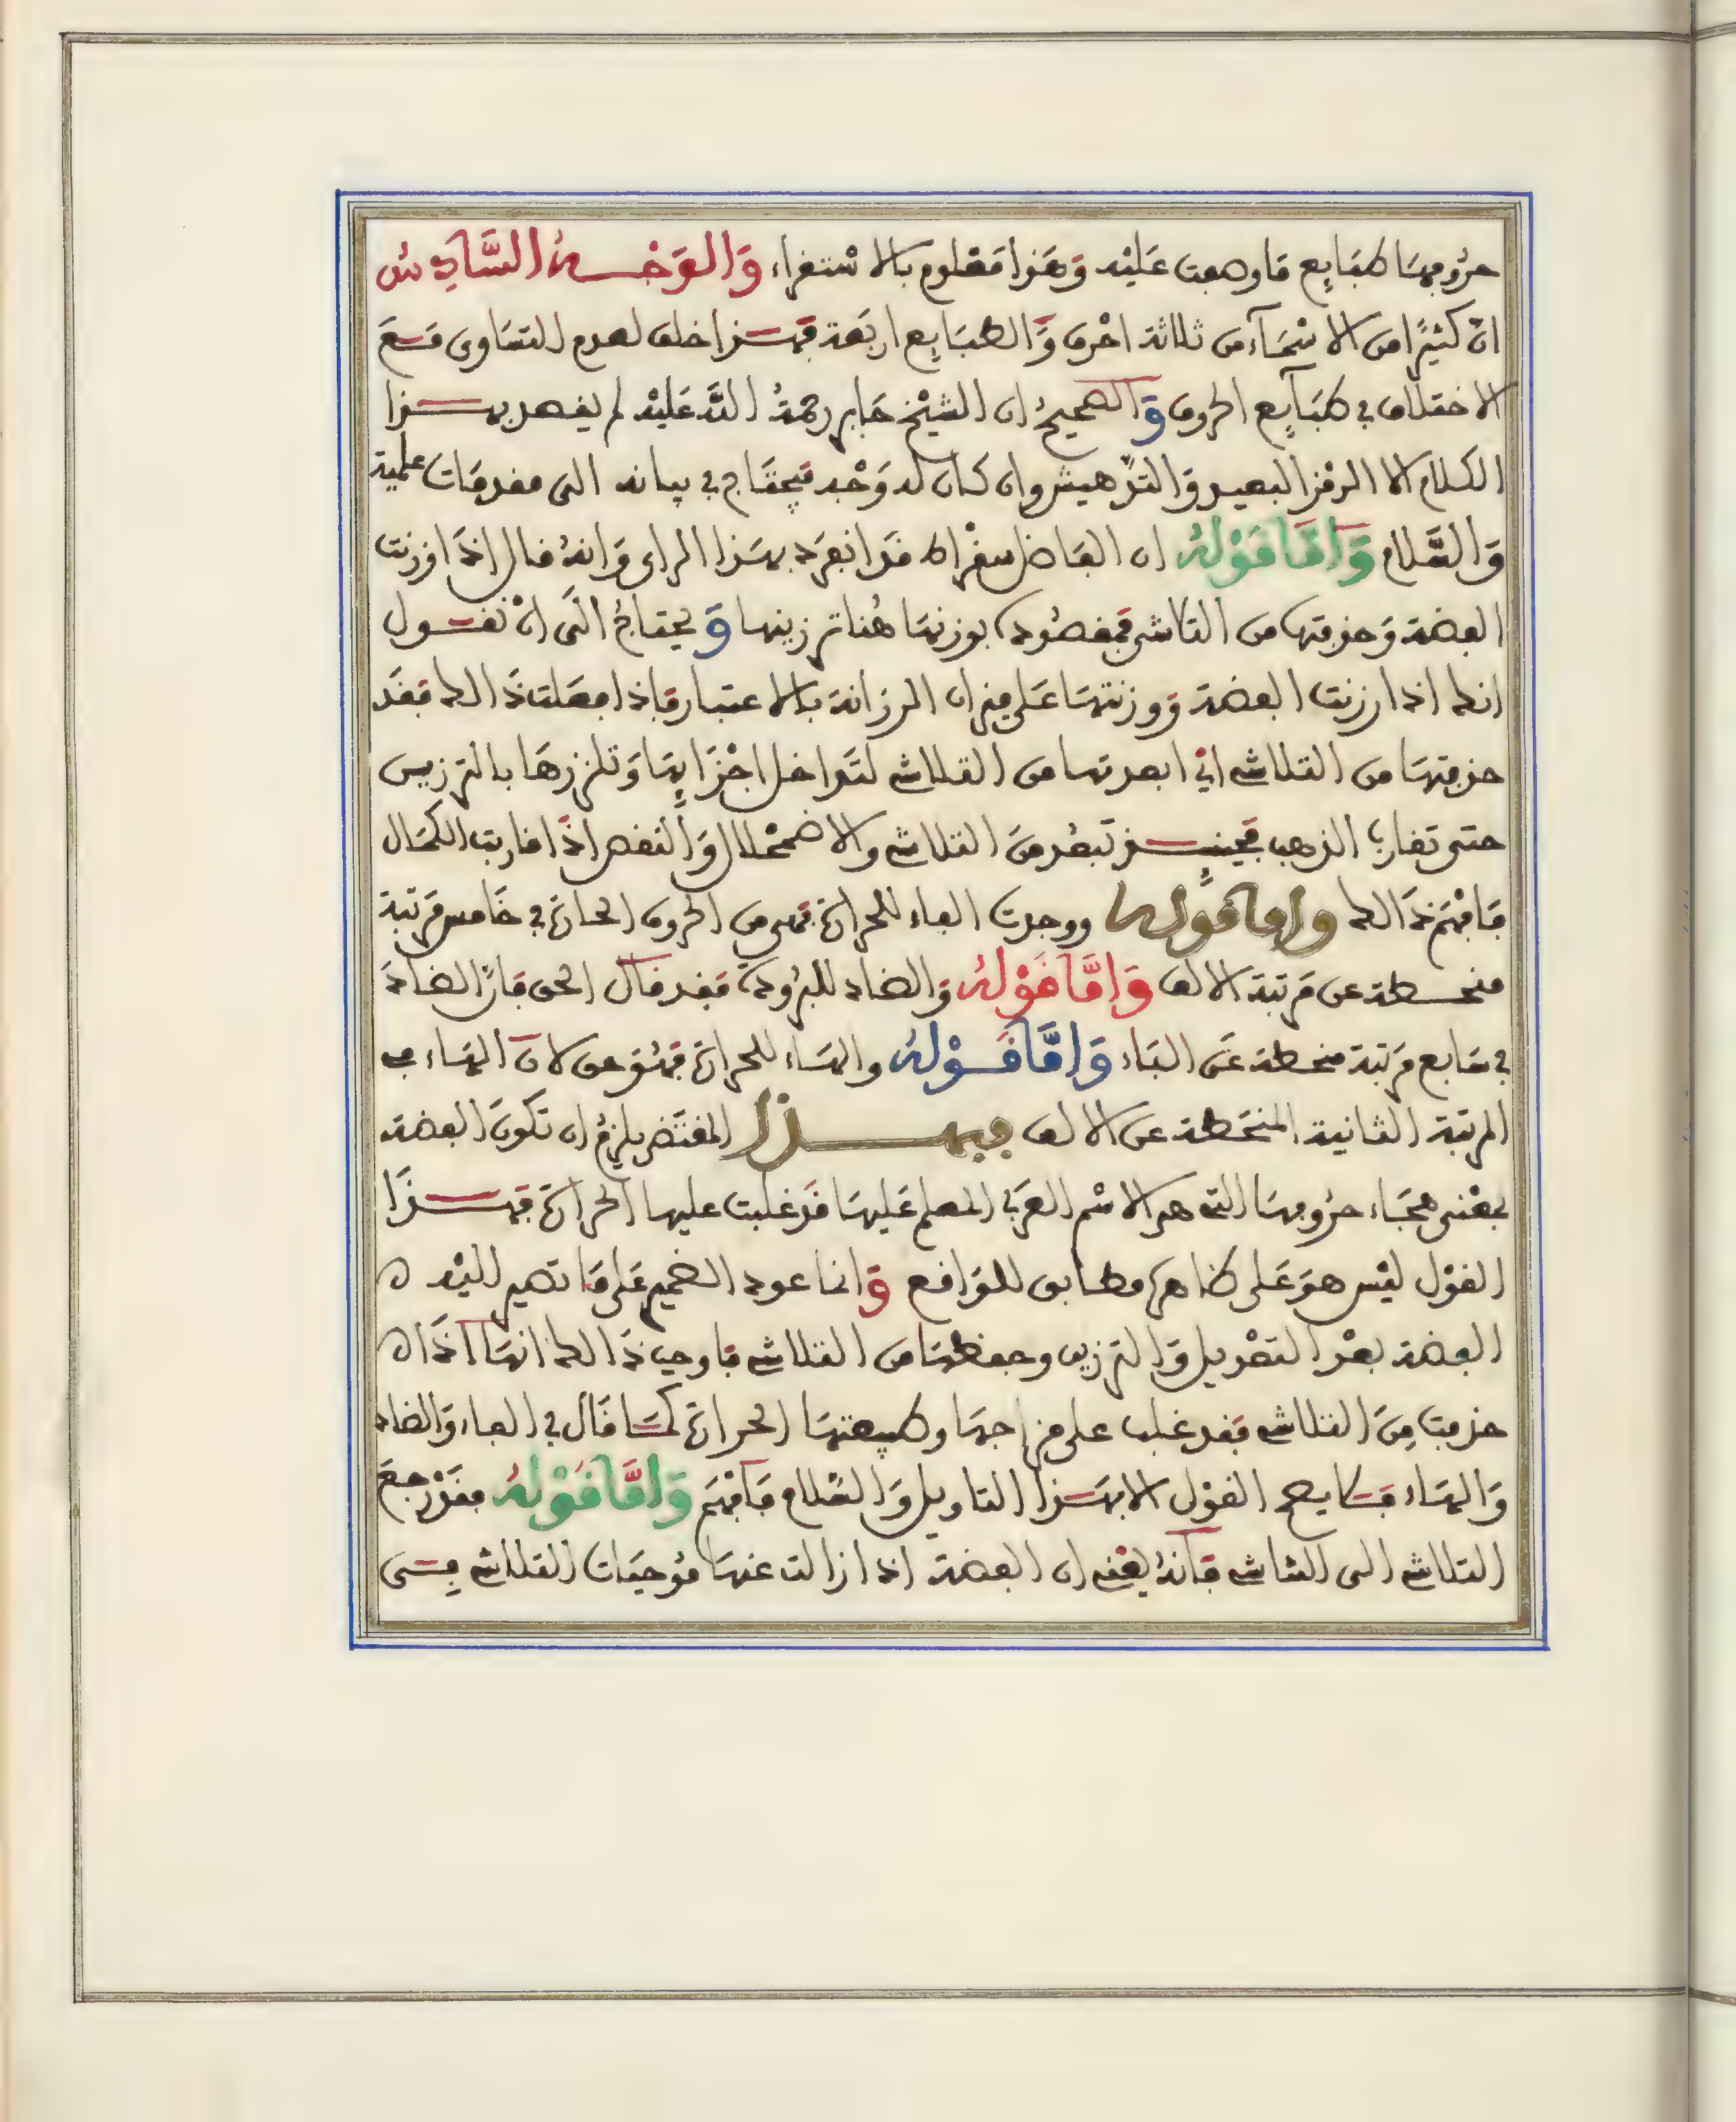 حروفها طبايع ما وضعت عليه وهذا معلوم بالاستقراء والوجه السادس
ان كثيرا من الاسماء من ثلاثة احرف والطبايع اربعة فهذا خلف لعدم التساوى مع
الاختلاف في طبايع الحروف والصحيح ان الشيخ جابر رحمة الله عليه لم يقصد بهذا
الكلام الا الرمز البعيد والتدهيش وان كان له وجه فيحتاج في بيانه الى مقدمات علمية
والسلام واما قوله ان الفاضل سقراط قد انفرد بهذا الراى وانه قال اذا وزنت
الفضة وحزمتها من التلاشى فمقصوده بوزنها هنا ترزينها ويحتاج الى ان نقول
انك اذا رزنت الفضة ووزنتها على ميزان الرزانة بالاعتبار فاذا فعلت ذالك فقد
حزمتها من التلاشى اي ابعدتها من التلاشى لتداخل اجزايها وتلززها بالترزين
حتى تقارب الذهب فحينيذ تبعد من التلاشى والاضمحلال والنقص اذا قاربت الكمال
فافهم ذالك واما قوله ووجدت الفاء للحرارة فهى من الحروف الحارة في خامس مرتبة
منحطة عن مرتبة الالف واما قوله والضاد للبرودة فقد قال الحق فان الضاد
في سابع مرتبة منحطة عن الباء واما قوله والهاء للحرارة فهو حق لان الهاء في
المرتبة الثانية المنحطة عن الالف فبهذا المقتضى يلزم ان تكون الفضة
بمعنى هجاء حروفها التى هى الاسم العربي المعلم عليها قد غلبت عليها الحرارة فهذا
القول ليس هو على ظاهره مطابق للواقع وانما عود الضمير على ما تصير اليه
الفضة بعد التعديل والترزين وحفظها من التلاشى فاوجب ذالك انها اذا
حزمت من التلاشى فقد غلب على مزاجها وطبيعتها الحرارة كما قال في الفاء والضاد
والهاء فما يصح القول الا بهذا التاويل والسلام فافهم واما قوله فقد رجع
التلاشى الى التاشى فانه يعنى ان الفضة اذا زالت عنها موجبات التلاشى فهى